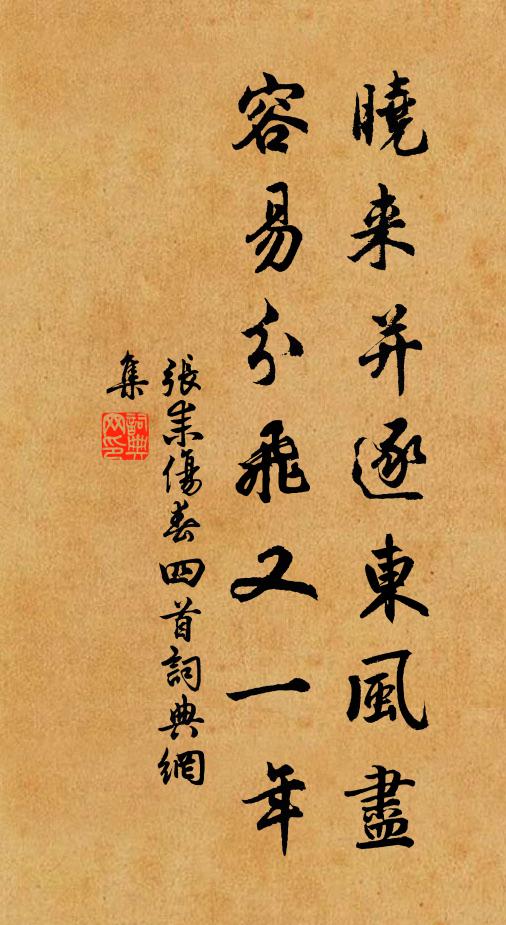 曉来并逐東風盡
容易分飛又一年
張耒傷春四首詞典網
集
詞典
网印